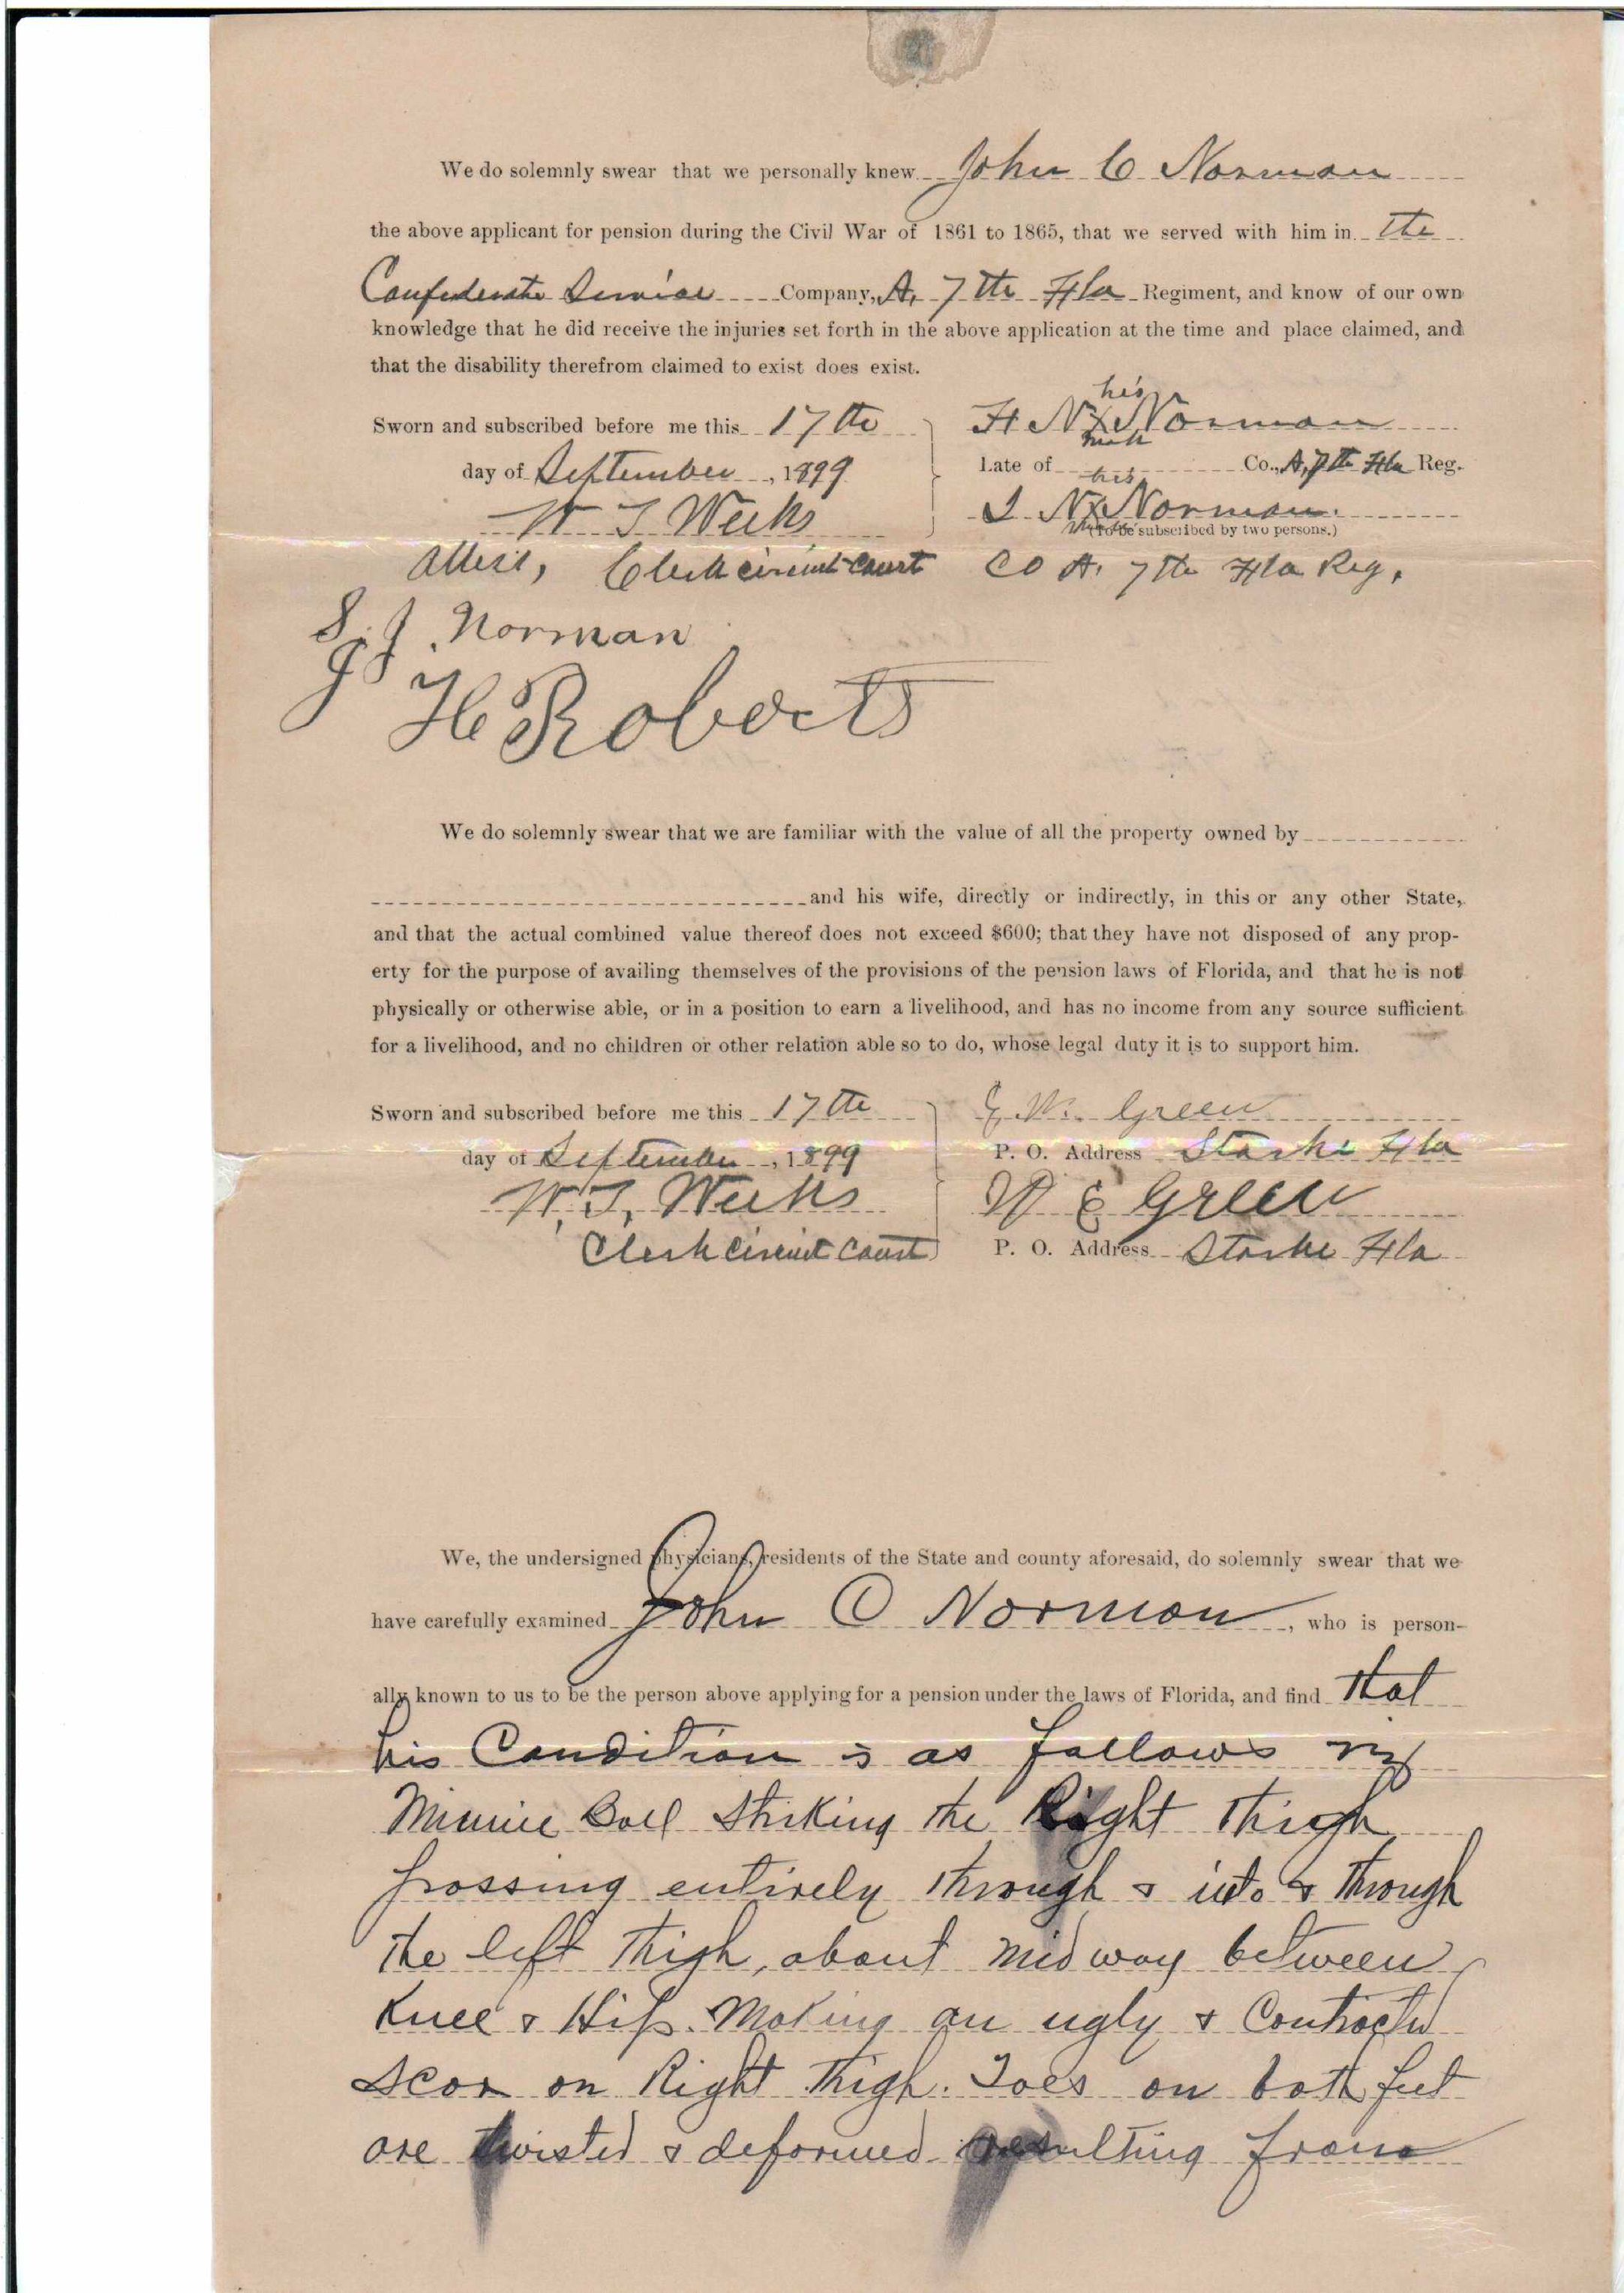 We do solemnly swear that we personally knew John C Norman
the above applicant for pension during the Civil War of 1861 to 1865, that we served with him in the
Confederate Service Company, A, 7th Fla Regiment, and know of our own
knowledge that he did receive the injuries set forth in the above application at the time and place claimed, and
that the disability therefrom claimed to exist does exist.
his
Sworn and subscribed before me this 17th F N X Norman
mark
day of September, 1899 Late of Co., A, 7th Fla Reg.
his
W T Weeks J N X Norman.
mark (To be subscribed by two persons.)
Attest, Clerk circuit court CO A. 7th Fla Reg.
S. J. Norman
J H Roberts
We do solemnly swear that we are familiar with the value of all the property owned by
and his wife, directly or indirectly, in this or any other State,
and that the actual combined value thereof does not exceed $600; that they have not disposed of any prop-
erty for the purpose of availing themselves of the provisions of the pension laws of Florida, and that he is not
physically or otherwise able, or in a position to earn a livelihood, and has no income from any source sufficient
for a livelihood, and no children or other relation able so to do, whose legal duty it is to support him.
Sworn and subscribed before me this 17th E. W. Green
day of September, 1899 P. O. Address Starke Fla
W. T. Weeks W E Green
Clerk Circuit Court P. O. Address Starke Fla
We, the undersigned physicians, residents of the State and county aforesaid, do solemnly swear that we
have carefully examined John C Norman, who is person-
ally known to us to be the person above applying for a pension under the laws of Florida, and find that
his Condition is as follows viz
Minnie Ball Striking the Right Thigh
passing entirely through & into & through
the left thigh, about mid way between
Knee & Hip. Making an ugly & Contracted
scar on Right thigh. Toes on both feet
are twisted & deformed resulting from